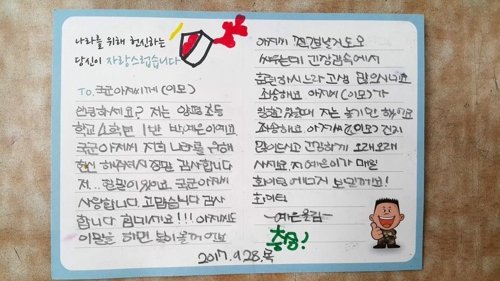 나라를 위해 헌신하는
당신이 자랑스럽습니다
To. 국군아저씨께 (이모)
안녕하세요? 저는 양평초등
학교 4학년 1반 박예은이에요
국군아저씨 저희 나라를 위해
헌신 해주셔서 정말 감사합니다
저... 할말이 있어요. 국군아저씨
사랑합니다 고맙습니다 감사
합니다 힘내세요!!! 아저씨도
이모를 하면
아저씨
싸우는데 긴장감속에서
훈련하시느라 고생 많으시네요
죄송해요 아저씨 (이모)가
있을때 저는 놀기만 했어요
죄송해요 아저씨 (이모) 건지
말아드시고 건강하게 오래오래
사시고요. 저 예은이가 매일
화이팅 에너지 보낼께요!
화이팅
-예은올림-
충성!
2017.9.28.목